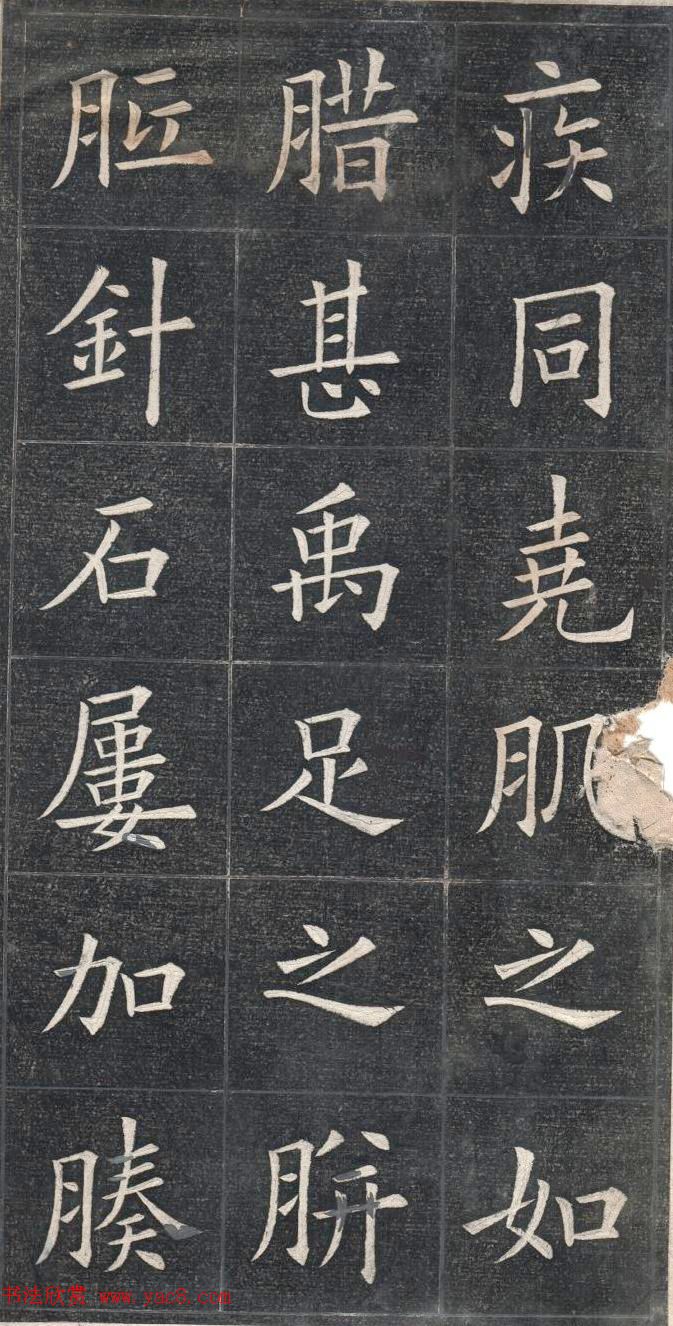 疾同堯肌之如
腊甚禹足之胼
胝針石屢加腠
书法欣赏 www.yac8.com